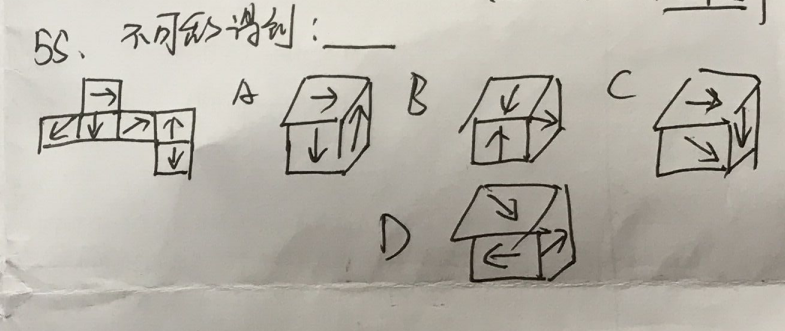 55、不可能得到：____
A B C
D